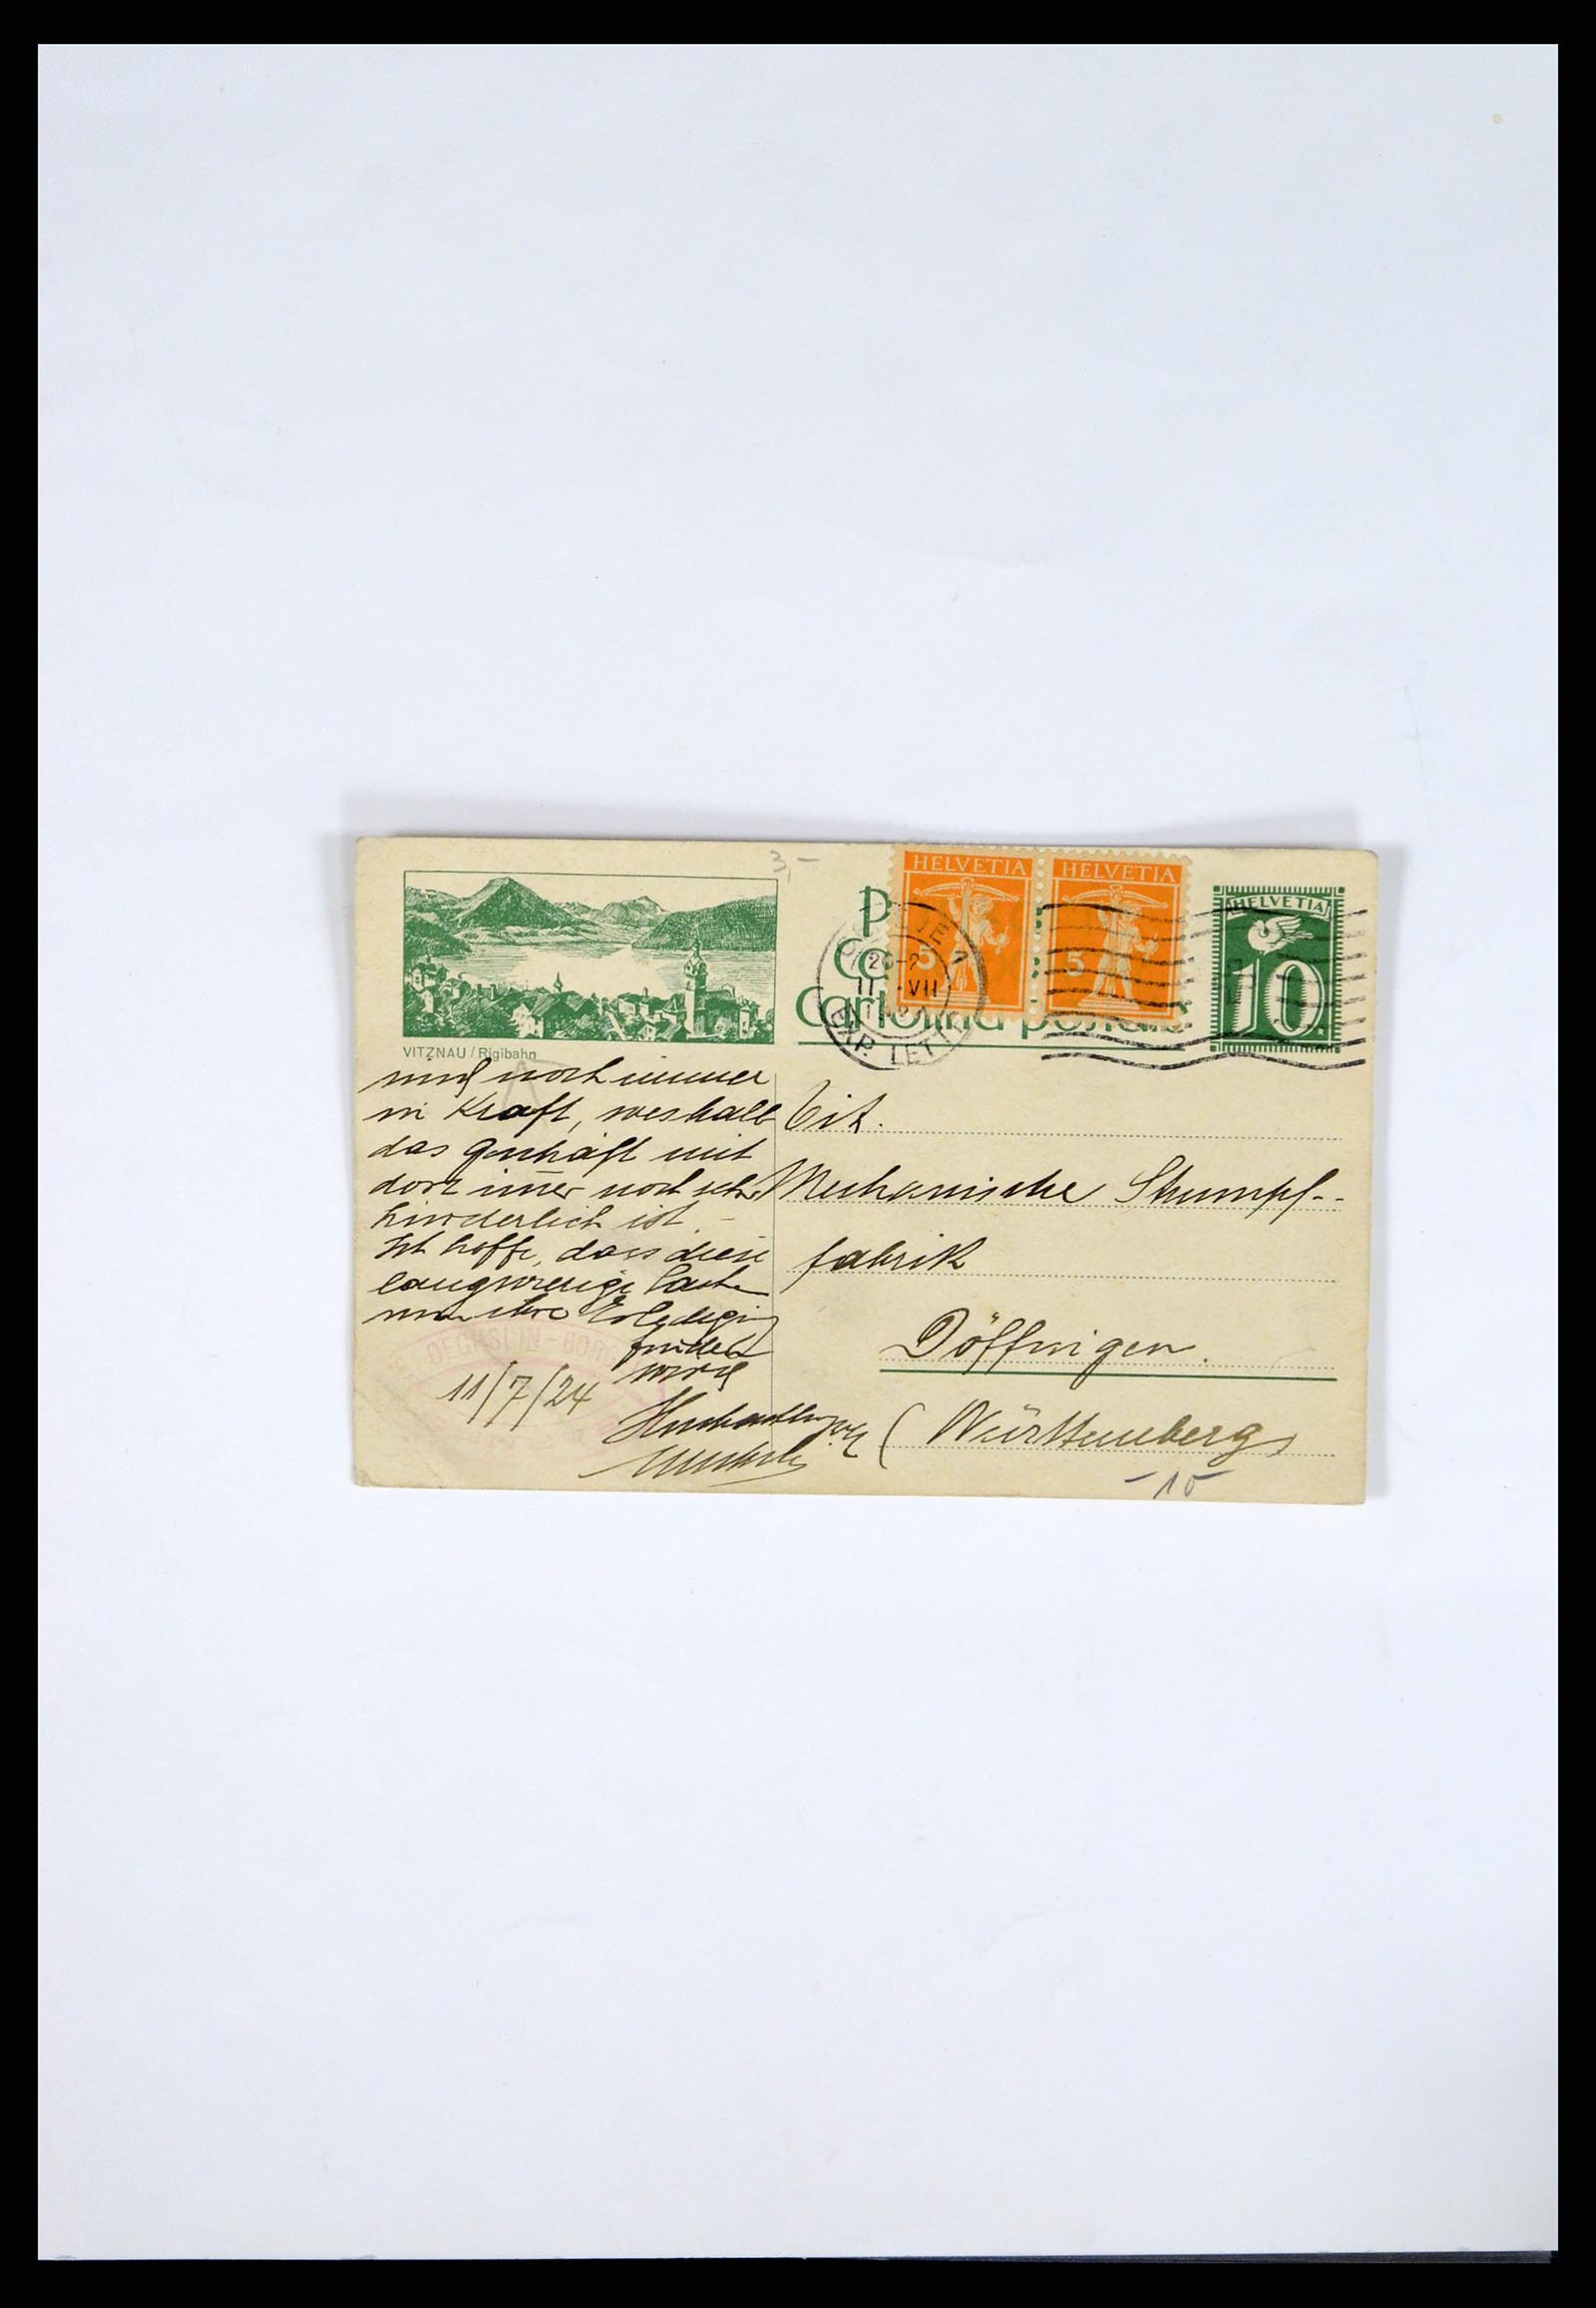 3,-
HELVETIA
HELVETIA
HELVETIA
5
5
10
P
Ca
Cartolina postale
11 VII
EXP. LETT
VITZNAU / Rigibahn
und noch immer
in Kraft, weshalb
das Geschäft mit
dort immer noch sehr
hinderlich ist. -
Ich hoffe, dass diese
langwierige Sache
nun ihre Erledigung
finden
wird
OECHSLIN-BOR
11/7/24
Hochachtungsvoll
Tit.
Mechanische Strumpf-
fabrik
Döffingen.
(Württemberg)
-15